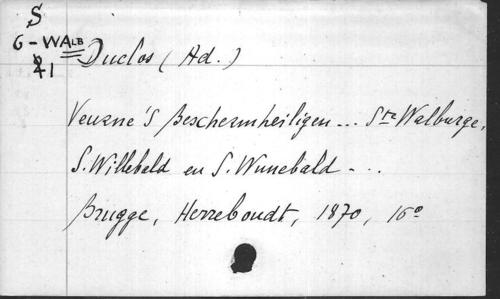 S
6-WALB
41
Duclos (Ad.)
Veurne'S Beschermheiligen... Ste Walburge,
S. Willebald en S. Wunebald...
Brugge, Herreboudt, 1870, 16°